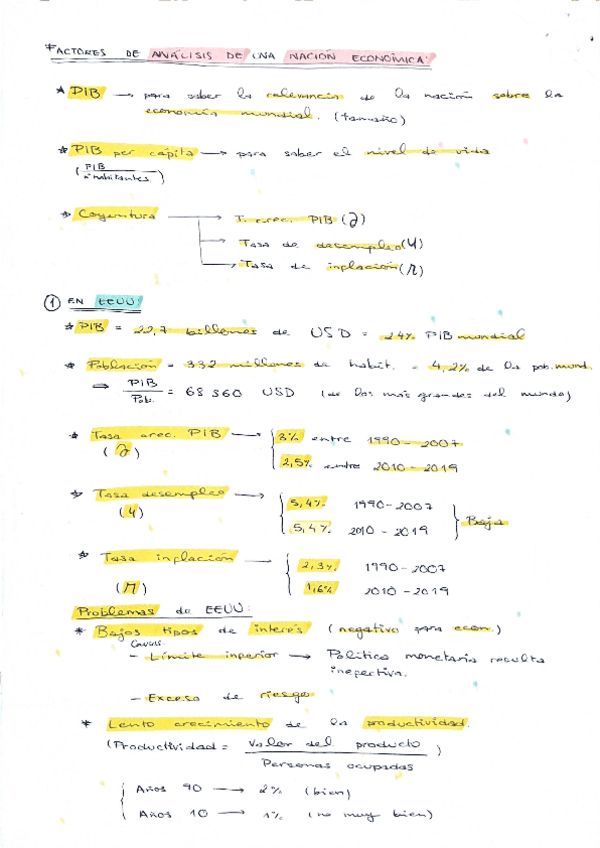 FACTORES DE ANÁLISIS DE UNA NACIÓN ECONÓMICA:
* PIB → para saber la relevancia de la nación sobre la
economía mundial. (tamaño)
* PIB per cápita → para saber el nivel de vida
(PIB / nº habitantes)
* Coyuntura → T. crec. PIB (g)
→ Tasa de desempleo (u)
→ Tasa de inflación (π)
① EN EEUU:
* PIB = 22,7 billones de USD = 24% PIB mundial
* Población = 332 millones de habit. = 4,2% de la pob. mund.
⇒ PIB / Pob. = 68 360 USD (de los más grandes del mundo)
* Tasa crec. PIB → 3% entre 1990-2007
(g) 2,5% entre 2010-2019
* Tasa desempleo → 5,4% 1990-2007
(u) 5,4% 2010-2019 } Baja
* Tasa inflación → 2,3% 1990-2007
(π) 1,6% 2010-2019
Problemas de EEUU:
* Bajos tipos de interés (negativo para econ.)
Causas
- Límite inferior → Política monetaria resulta
inefectiva.
- Exceso de riesgo
* Lento crecimiento de la productividad.
(Productividad = Valor del producto / Personas ocupadas)
Años 90 → 2% (bien)
Años 10 → 1% (no muy bien)